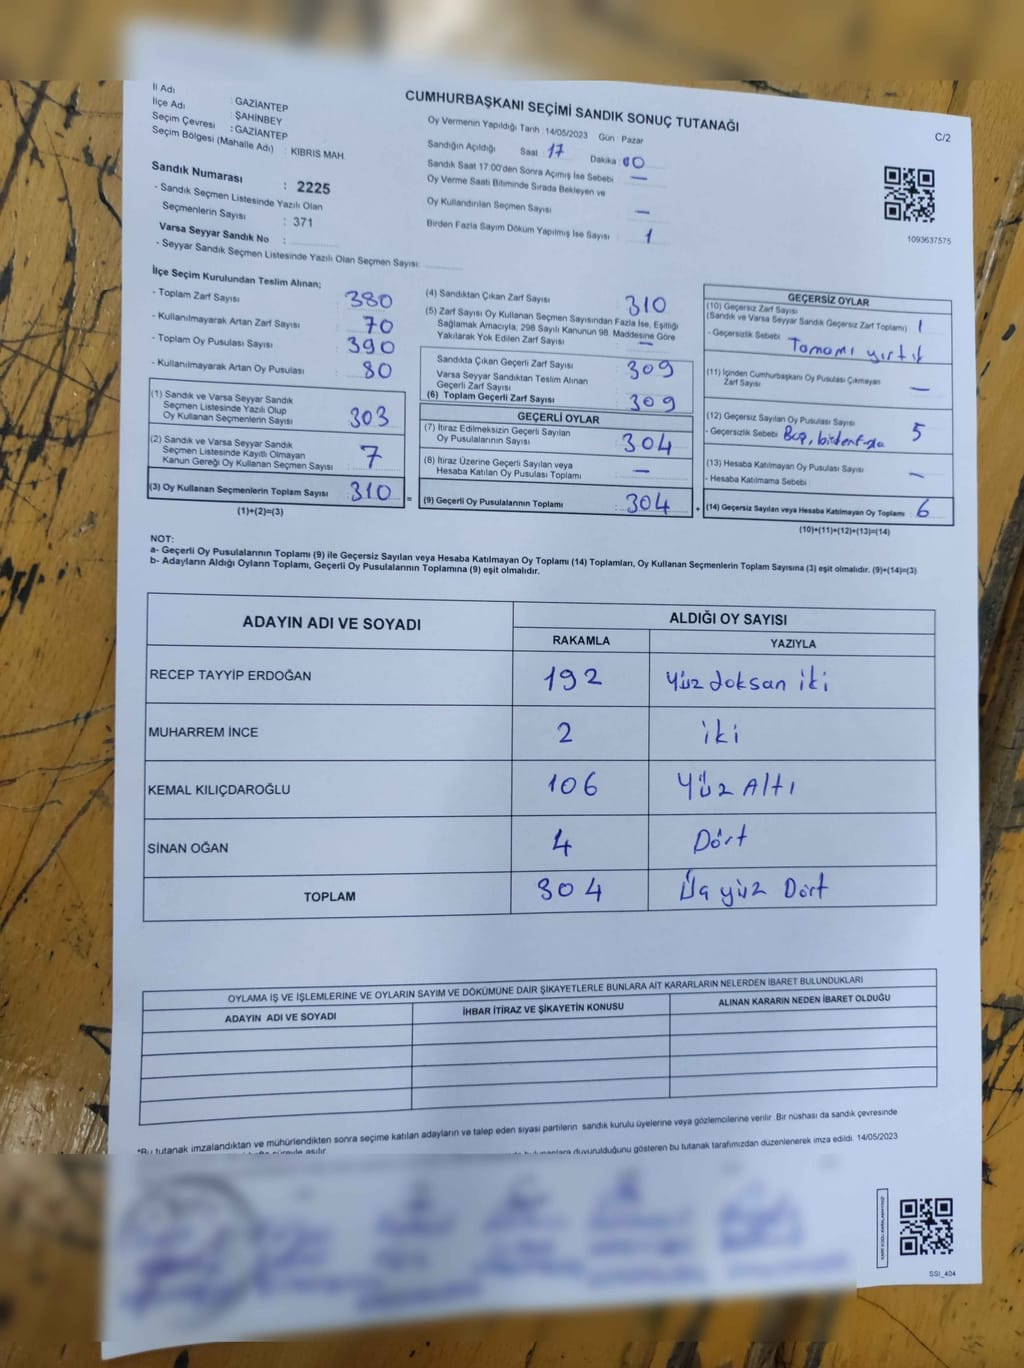 CUMHURBAŞKANI SEÇİMİ SANDIK SONUÇ TUTANAĞI
C/2
İl Adı : GAZİANTEP
İlçe Adı : ŞAHİNBEY
Seçim Çevresi : GAZİANTEP
Seçim Bölgesi (Mahalle Adı) : KIBRIS MAH.
Sandık Numarası : 2225
- Sandık Seçmen Listesinde Yazılı Olan
Seçmenlerin Sayısı : 371
Varsa Seyyar Sandık No :
- Seyyar Sandık Seçmen Listesinde Yazılı Olan Seçmen Sayısı:
Oy Vermenin Yapıldığı Tarih :14/05/2023 Gün Pazar
Sandığın Açıldığı Saat : 17 Dakika : 00
Sandık Saat 17:00'den Sonra Açılmış İse Sebebi : —
Oy Verme Saati Bitiminde Sırada Bekleyen ve
Oy Kullandırılan Seçmen Sayısı —
Birden Fazla Sayım Döküm Yapılmış İse Sayısı : 1
1093637575
İlçe Seçim Kurulundan Teslim Alınan;
- Toplam Zarf Sayısı : 380
- Kullanılmayarak Artan Zarf Sayısı : 70
- Toplam Oy Pusulası Sayısı : 390
- Kullanılmayarak Artan Oy Pusulası : 80
(1) Sandık ve Varsa Seyyar Sandık
Seçmen Listesinde Yazılı Olup
Oy Kullanan Seçmenlerin Sayısı : 303
(2) Sandık ve Varsa Seyyar Sandık
Seçmen Listesinde Kayıtlı Olmayan
Kanun Gereği Oy Kullanan Seçmen Sayısı : 7
(3) Oy Kullanan Seçmenlerin Toplam Sayısı : 310
(1)+(2)=(3)
=
(4) Sandıktan Çıkan Zarf Sayısı : 310
(5) Zarf Sayısı Oy Kullanan Seçmen Sayısından Fazla İse, Eşitliği
Sağlamak Amacıyla, 298 Sayılı Kanunun 98. Maddesine Göre
Yakılarak Yok Edilen Zarf Sayısı : —
Sandıkta Çıkan Geçerli Zarf Sayısı : 309
Varsa Seyyar Sandıktan Teslim Alınan
Geçerli Zarf Sayısı :
(6) Toplam Geçerli Zarf Sayısı : 309
GEÇERLİ OYLAR
(7) İtiraz Edilmeksizin Geçerli Sayılan
Oy Pusulalarının Sayısı : 304
(8) İtiraz Üzerine Geçerli Sayılan veya
Hesaba Katılan Oy Pusulası Toplamı : —
(9) Geçerli Oy Pusulalarının Toplamı : 304
+
GEÇERSİZ OYLAR
(10) Geçersiz Zarf Sayısı
(Sandık ve Varsa Seyyar Sandık Geçersiz Zarf Toplamı) : 1
- Geçersizlik Sebebi : Tamamı yırtık
(11) İçinden Cumhurbaşkanı Oy Pusulası Çıkmayan
Zarf Sayısı : —
(12) Geçersiz Sayılan Oy Pusulası Sayısı : 5
- Geçersizlik Sebebi : Boş, birden fazla
(13) Hesaba Katılmayan Oy Pusulası Sayısı : —
- Hesaba Katılmama Sebebi :
(14) Geçersiz Sayılan veya Hesaba Katılmayan Oy Toplamı : 6
(10)+(11)+(12)+(13)=(14)
NOT:
a- Geçerli Oy Pusulalarının Toplamı (9) ile Geçersiz Sayılan veya Hesaba Katılmayan Oy Toplamı (14) Toplamları, Oy Kullanan Seçmenlerin Toplam Sayısına (3) eşit olmalıdır. (9)+(14)=(3)
b- Adayların Aldığı Oyların Toplamı, Geçerli Oy Pusulalarının Toplamına (9) eşit olmalıdır.
ADAYIN ADI VE SOYADI
ALDIĞI OY SAYISI
RAKAMLA YAZIYLA
RECEP TAYYİP ERDOĞAN 192 Yüz doksan iki
MUHARREM İNCE 2 iki
KEMAL KILIÇDAROĞLU 106 Yüz Altı
SİNAN OĞAN 4 Dört
TOPLAM 304 Üç yüz Dört
OYLAMA İŞ VE İŞLEMLERİNE VE OYLARIN SAYIM VE DÖKÜMÜNE DAİR ŞİKAYETLERLE BUNLARA AİT KARARLARIN NELERDEN İBARET BULUNDUKLARI
ADAYIN ADI VE SOYADI İHBAR İTİRAZ VE ŞİKAYETİN KONUSU ALINAN KARARIN NEDEN İBARET OLDUĞU
*Bu tutanak imzalandıktan ve mühürlendikten sonra seçime katılan adayların ve talep eden siyasi partilerin sandık kurulu üyelerine veya gözlemcilerine verilir. Bir nüshası da sandık çevresinde
duyurulduğunu gösteren bu tutanak tarafımızdan düzenlenerek imza edildi. 14/05/2023
SSI_404